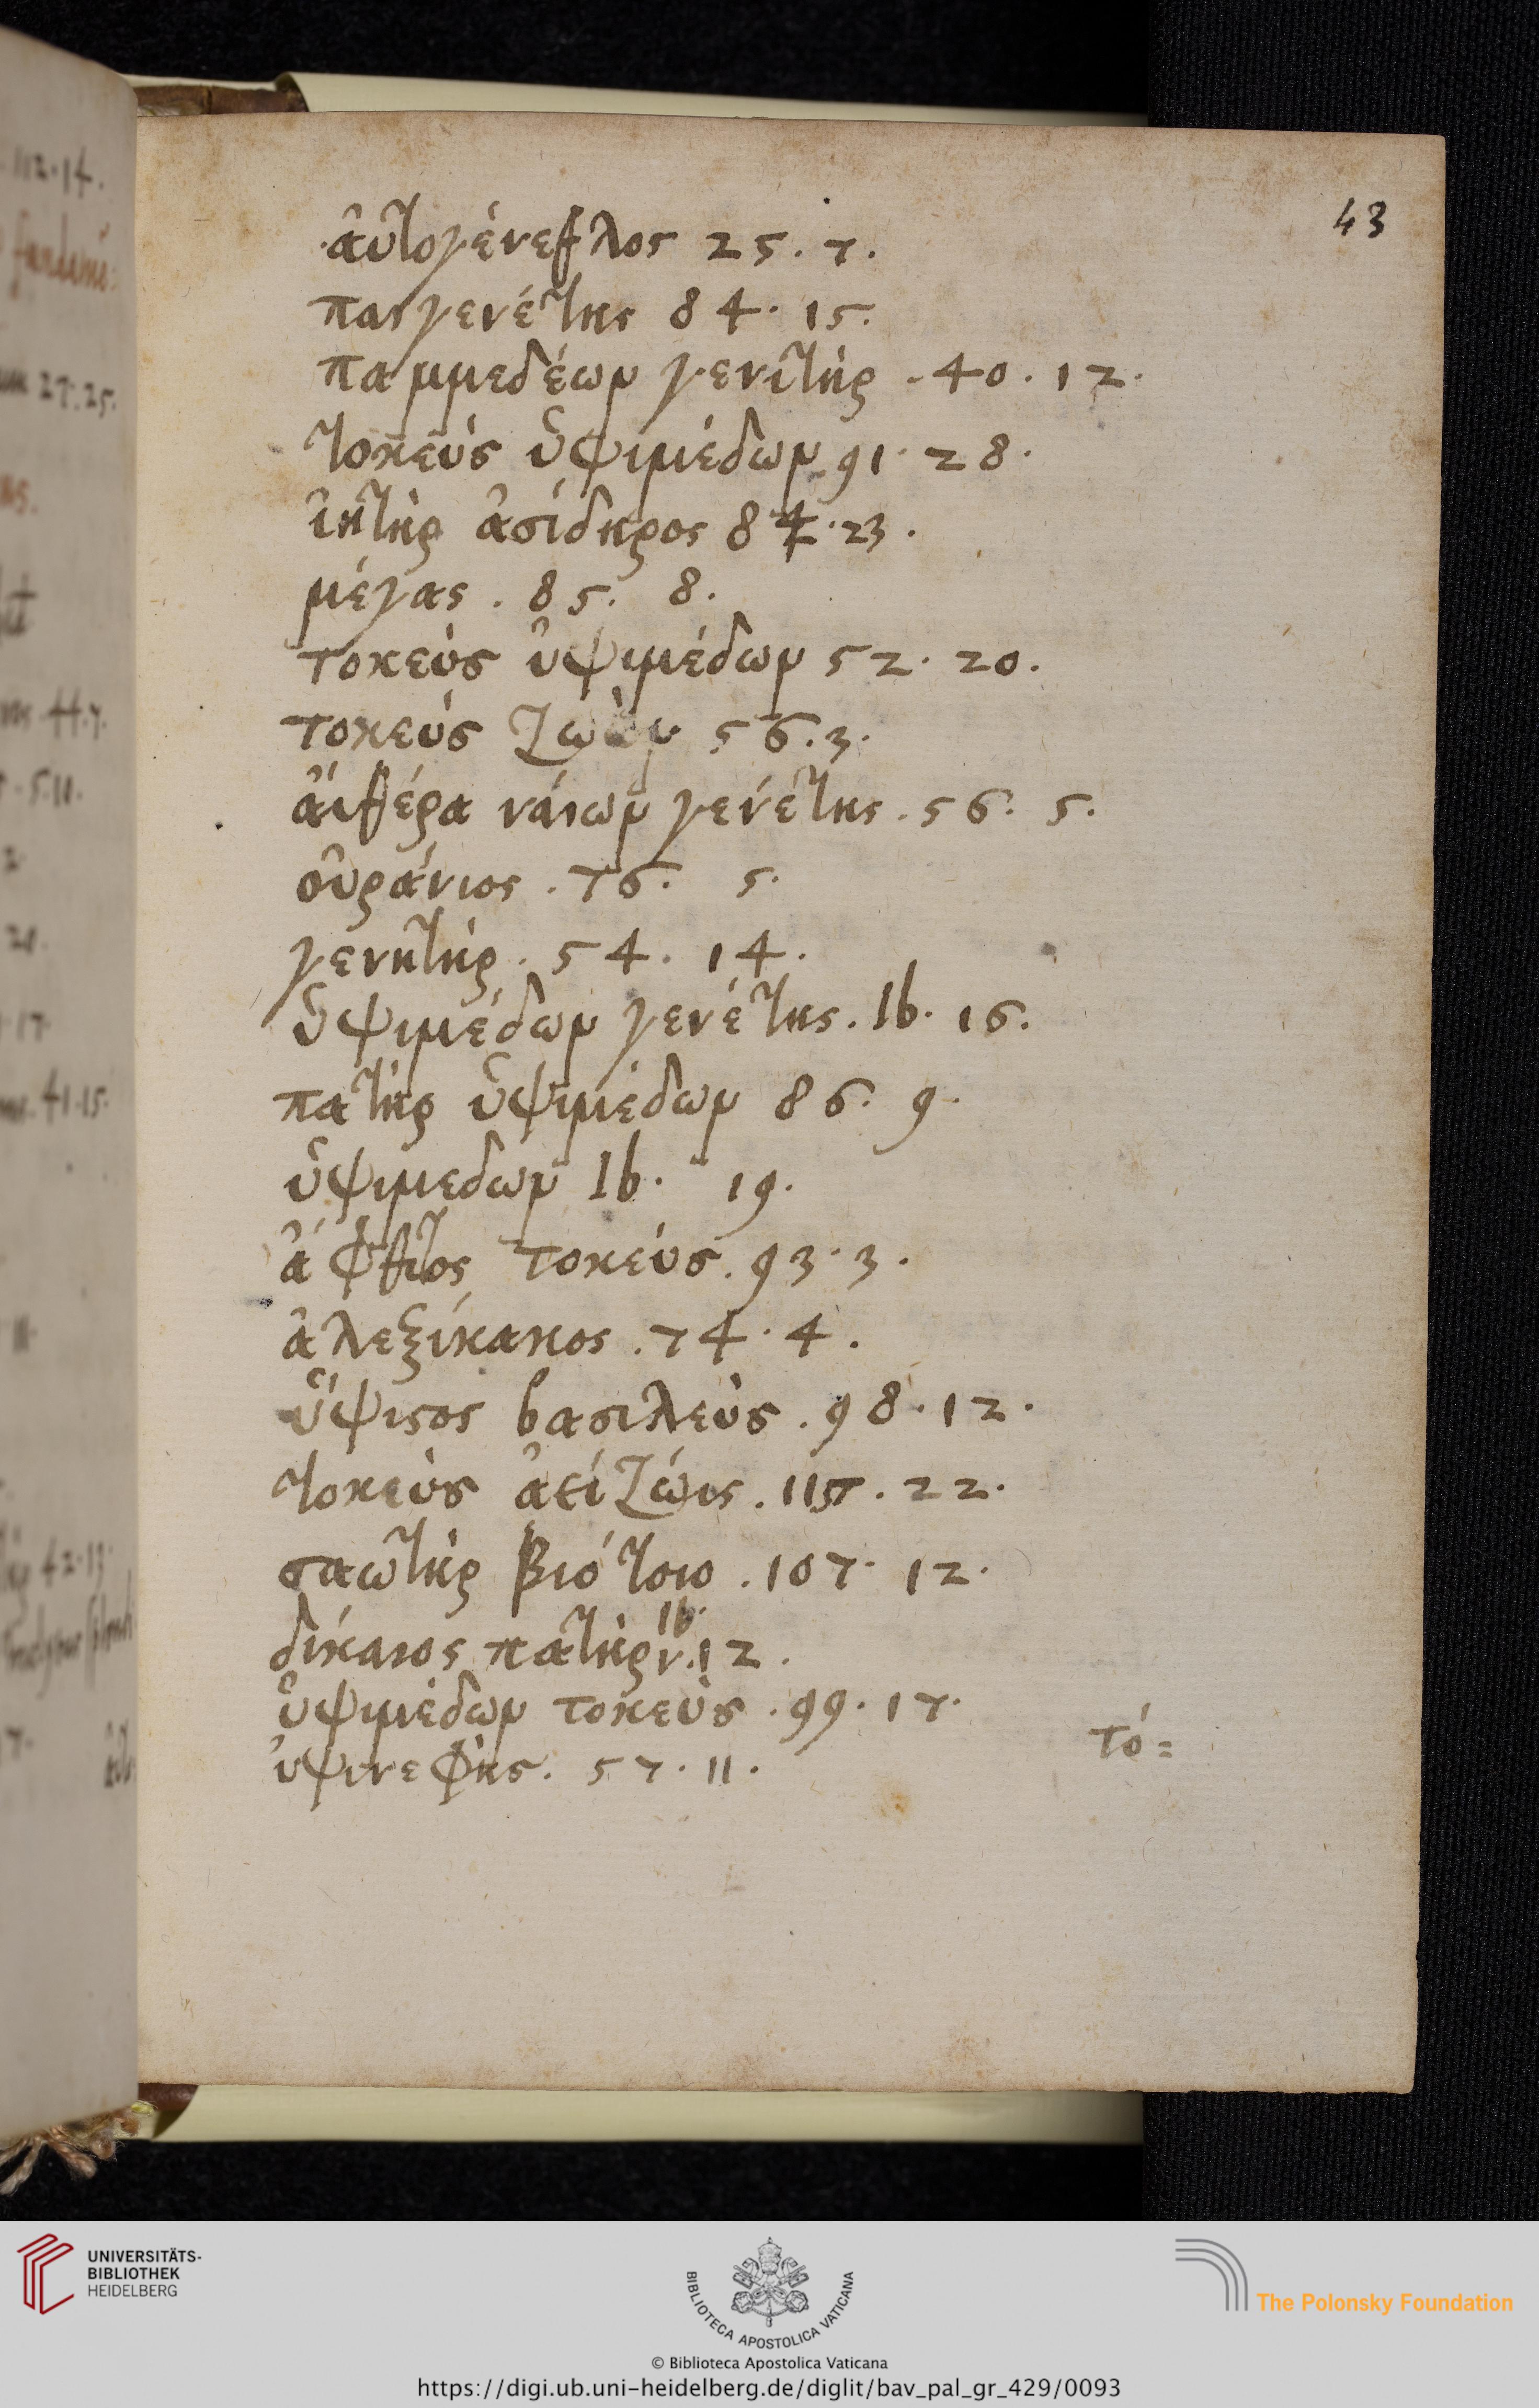 43
αὐτογένεθλος 25. 7.
παγγενέτης 84. 15.
παμμεδέων γενετήρ. 40. 12.
τοκεὺς ὑψιμέδων 91. 28.
ἰητὴρ ἀσίδηρος 84. 23.
μέγας. 85. 8.
τοκεὺς ὑψιμέδων 52. 20.
τοκεὺς 56. 3.
αἰθέρα ναίων γενέτης. 56. 5.
οὐράνιος. 76. 5.
γενητήρ. 54. 14.
ὑψιμέδων γενέτης. Ib. 16.
πατὴρ ὑψιμέδων 86. 9.
ὑψιμεδων Ib. 19.
ἄφθιτος τοκεύς. 93. 3.
ἀλεξίκακος. 74. 4.
ὕψιστος βασιλεύς. 98. 12.
τοκεὺς ἀεὶ ζώις. 115. 22.
σαωτὴρ βιότοιο. 107. 12.
δίκαιος πατὴρ Ib. 12.
ὑψιμέδων τοκεύς. 99. 17.
ὑψινεφής. 57. 11.
τό=
UNIVERSITÄTS-
BIBLIOTHEK
HEIDELBERG
BIBLIOTECA APOSTOLICA VATICANA
The Polonsky Foundation
© Biblioteca Apostolica Vaticana
https://digi.ub.uni-heidelberg.de/diglit/bav_pal_gr_429/0093